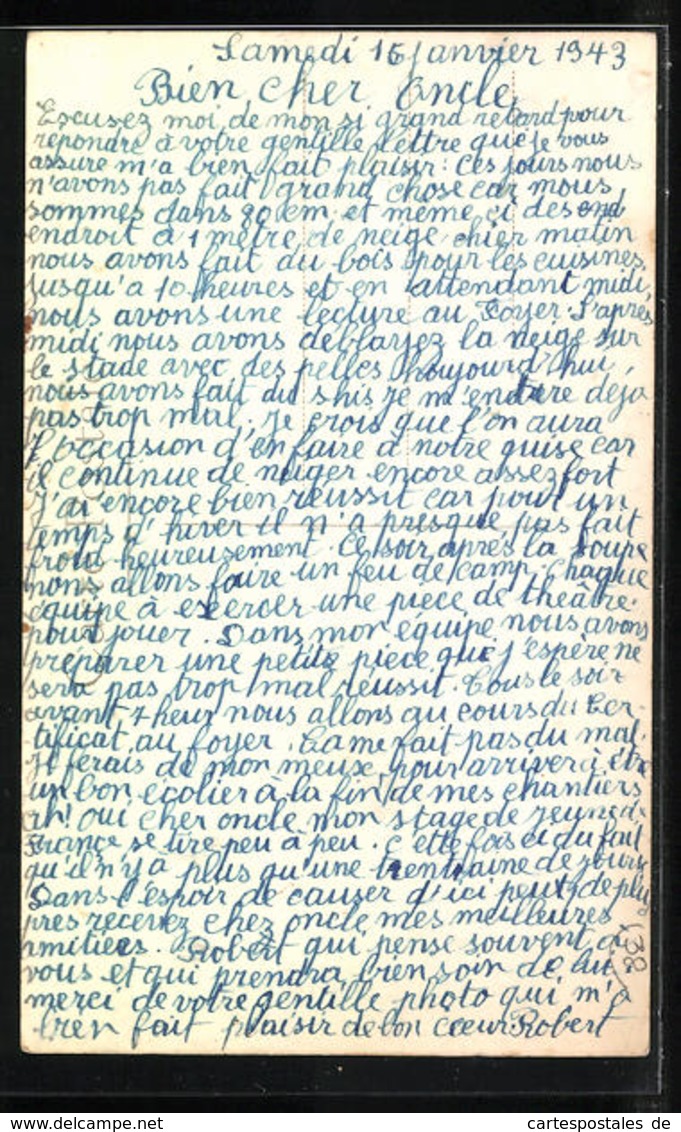 Samedi 16 Janvier 1943
Bien cher Oncle
Escusez moi de mon si grand retard pour
répondre à votre gentille lettre que je vous
assure m'a bien fait plaisir: ces jours nous
n'avons pas fait grand chose car nous
sommes dans 80 cm et même ci des end
endroit à 1 mètre de neige. hier matin
nous avons fait du bois pour les cuisines.
jusqu'à 10 heures et en attendant midi,
nous avons une lecture au Foyer. l'après
midi nous avons déblarjez la neige sur
le stade avec des pelles houjourd hui
nous avons fait du skis je m'en tire déjà
pas trop mal. je crois que l'on aura
l'occasion d'en faire à notre guise car
il continue de neiger encore assez fort
J'ai encore bien réussit car pour un
temps d'hiver il n'a presque pas fait
froid heureusement. Ce soir après la soupe
nous allons faire un feu de camp. chaque
équipe à exercer une pièce de théâtre
pour jouer. Dans mon équipe nous avons
préparer une petite pièce qui j'espère ne
sera pas trop mal réussit. Tous le soir
avant 7 heur nous allons au cours du Cer-
tificat au foyer. Ca me fait pas du mal.
Je ferais de mon meux pour arriver à être
un bon écolier à la fin de mes chantiers
ah! oui cher oncle mon stage de jeunesse
France se tire peu à peu. Cette fois ci du fait
qu'il n'y a plus qu'une trentaine de jours
Dans l'espoir de causer d'ici peut de plus
près recevez chez oncle mes meilleures
amitiées. Robert qui pense souvent à
vous et qui prendra bien soin de lui
merci de votre gentille photo qui m'a
bien fait plaisir de bon cœur. Robert
138
www.delcampe.net
cartespostales de